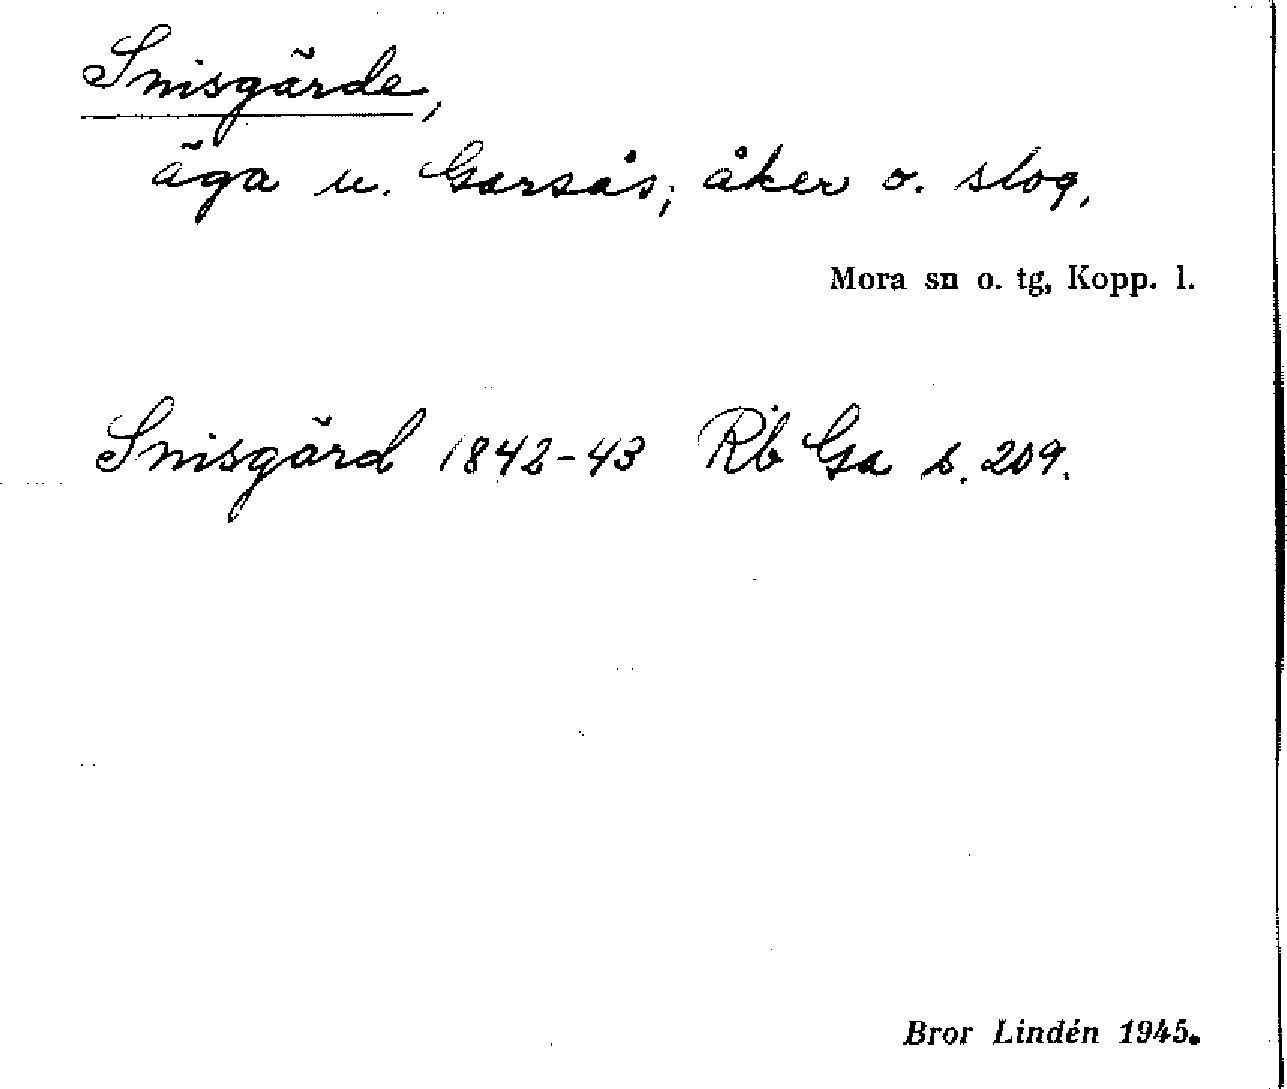 Snisgärde,
äga u. Garsås; åker o. slog.
Mora sn o. tg, Kopp. l.
Snisgärd 1842-43 Rb Ga s. 209.
Bror Lindén 1945.